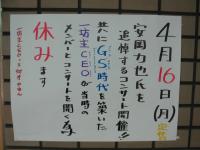 4月16日(月)定休日
安岡力也氏を
追悼するコンサート開催!!
共にG.S.時代を築いた
一坊主CEOが当時の
メンバーとコンサートを開く為
休みます